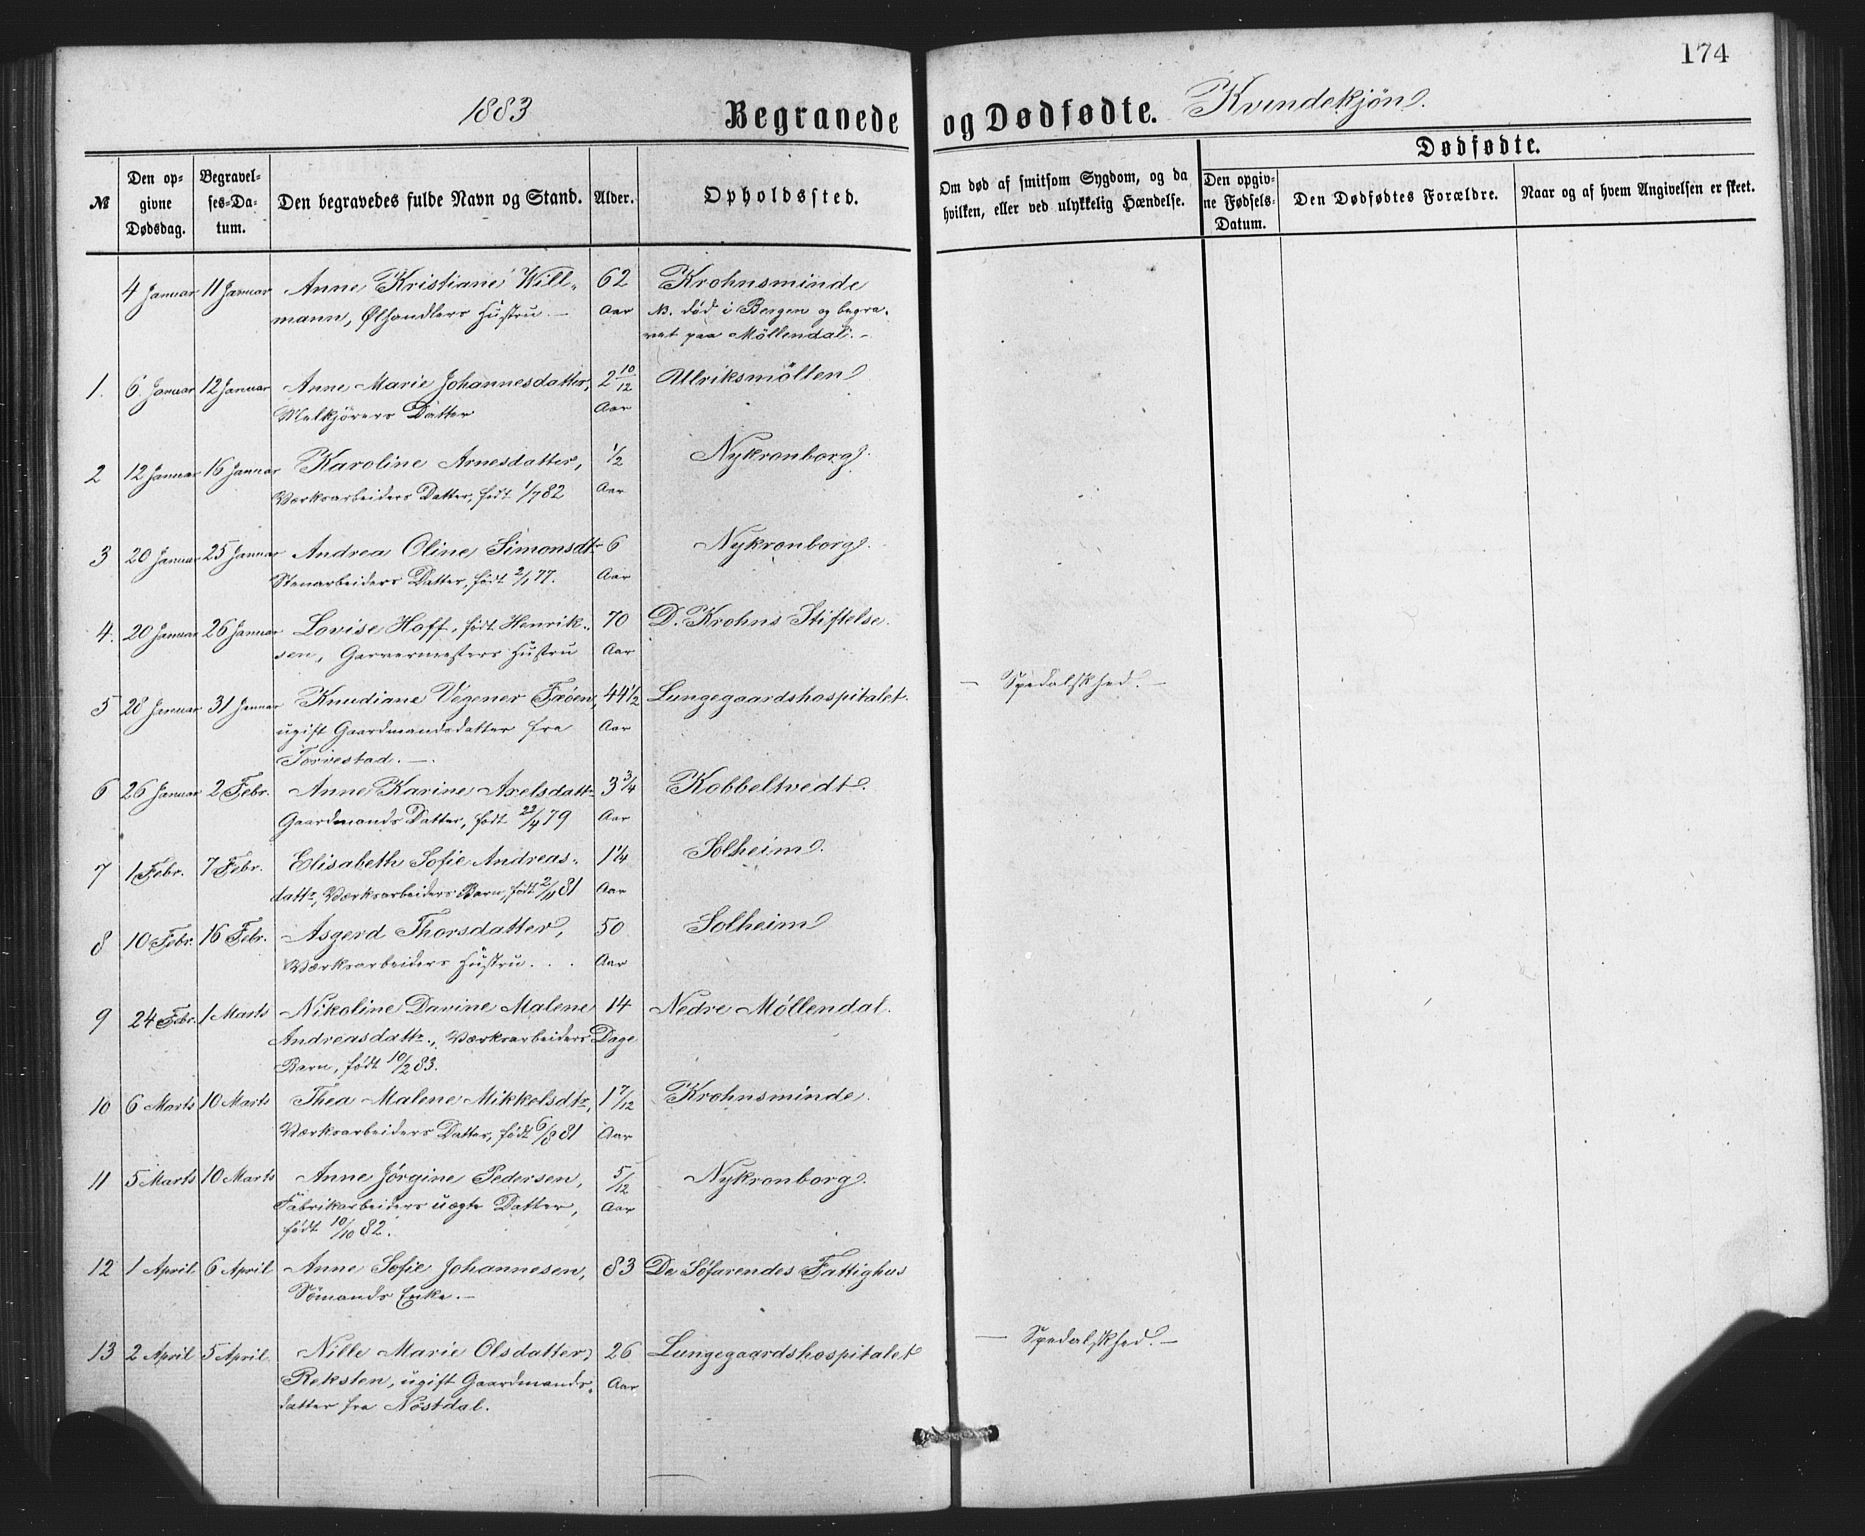 174
1883 Begravede og Dødfødte. Kvindekjøn.
№ Den opgivne Dødsdag. Begravelses-Datum. Den begravedes fulde Navn og Stand. Alder. Opholdssted. Om død af smitsom Sygdom, og da hvilken, eller ved ulykkelig Hændelse. Dødfødte. Den opgivne Fødsels-Datum. Den Dødfødtes Forældre. Naar og af hvem Angivelsen er skeet.
4 Januar 11 Januar Anne Kristiane Will- 62 Krohnsminde
mann, Ølhandlers Hustru.- Aar NB. død i Bergen og begra-
vet paa Möllendal.-
1. 6 Januar 12 Januar Anne Marie Johannesdatter, 2 10/12 Ulriksmölten
Melkjörers Datter Aar
2 12 Januar 16 Januar Karoline Arnesdatter, 1/2 Nykronborg.
Værksarbeiders Datter, født 1/7 82 Aar
3 20 Januar 25 Januar Andrea Oline Simonsdtr 6 Nykronborg.
Stenarbeiders Datter, født 2/1 77. Aar
4. 20 Januar 26 Januar Lovise Hoff, født Henrik- 70 D. Krohns Stiftelse.
sen, Garvermesters Hustru Aar
5 28 Januar 31 Januar Knudiane Vegener Fæöen, 44 1/2 Lungegaardshospitalet. - Spedalskhed.-
ugift Gaardmandsdatter fra Aar
Torvestad.-
6 26 Januar 2 Febr. Anne Karine Axelsdattr 3 3/4 Kobbeltvedt.
Gaardmands Datter, født 23/4 79 Aar
7 1 Febr. 7 Febr. Elisabeth Sofie Andreas- 1 1/4 Solheim.
dattr, Værksarbeiders Barn, født 2/11 81 Aar
8 10 Febr. 16 Febr. Asgerd Thorsdatter, 50 Solheim
Værksarbeiders Hustru. . . Aar
9 24 Febr. 1 Marts Nikoline Davine Malene 14 Nedre Möllendal.
Andreasdattr., Værksarbeiders Dage
Barn, født 10/2 83.
10 6 Marts 10 Marts Thea Malene Mikkelsdtr, 1 7/12 Krohnsminde.
Værksarbeiders Datter, født 6/8 81 Aar
11 5 Marts 10 Marts Anne Jørgine Pedersen, 5/12 Nykronborg.
Fabrikarbeiders uægte Datter, Aar
født 10/10 82.
12 1 April 6 April Anne Sofie Johannesen, 83 De Söfarendes Fattighus
Sömands Enke.-
13 2 April 5 April. Nille Marie Olsdatter, 26 Lungegaardshospitalet - Spedalskhed.-
Reksten, ugift Gaardmands- Aar
datter fra Nöstdal.